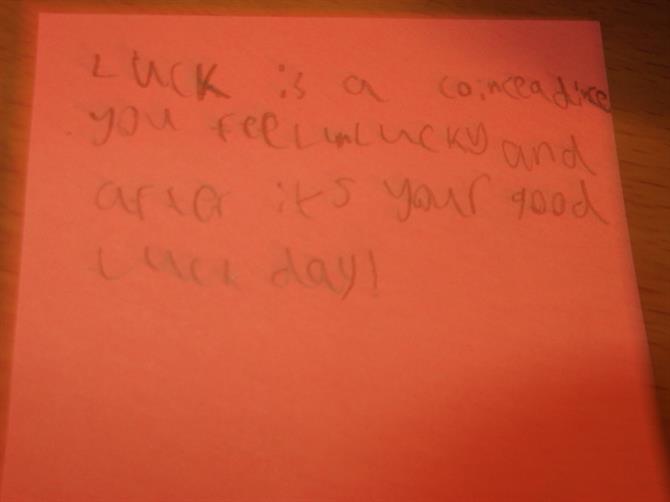 Luck is a coinceadince
you feel unlucky and
after it's your good
luck day!